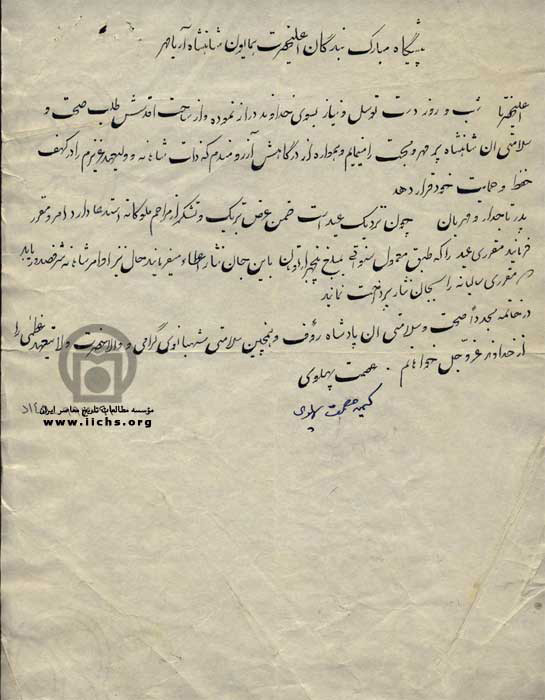 پیشگاه مبارک بندگان اعلیحضرت همایون شاهنشاه آریامهر
اعلیحضرتا شب و روز دست توسل و نیاز بسوی خداوند دراز نموده و از ساحت اقدسش طلب صحت و
سلامتی آن شاهنشاه پر مهر و محبت را مینمایم و همواره از درگاهش آرزومندم که ذات شاهانه و ولیعهد عزیزم را در کنف
حفظ و حمایت خود قرار دهد
پدر تاجدار و مهربان چون نزدیک عید است ضمن عرض تبریک و تشکر از مراحم ملوکانه استدعا دارد امر و مقرر
فرمایند مقرری عید را که طبق معمول سنواتی مبلغ پنجهزار تومان باین جان نثار اعطاء میفرمایند حال نیز اوامر شاهانه شرفصدور یابد
مقرری سالیانه را بجان نثار پرداخت نمایند
در خاتمه مجدداً صحت و سلامتی آن پادشاه رؤف و همچنین سلامتی شهبانوی گرامی و والاحضرت ولایتعهد عظمی را
از خداوند عز و جل خواهانم . عصمت پهلوی
عصمت پهلوی
مؤسسه مطالعات تاریخ معاصر ایران
www.iichs.org